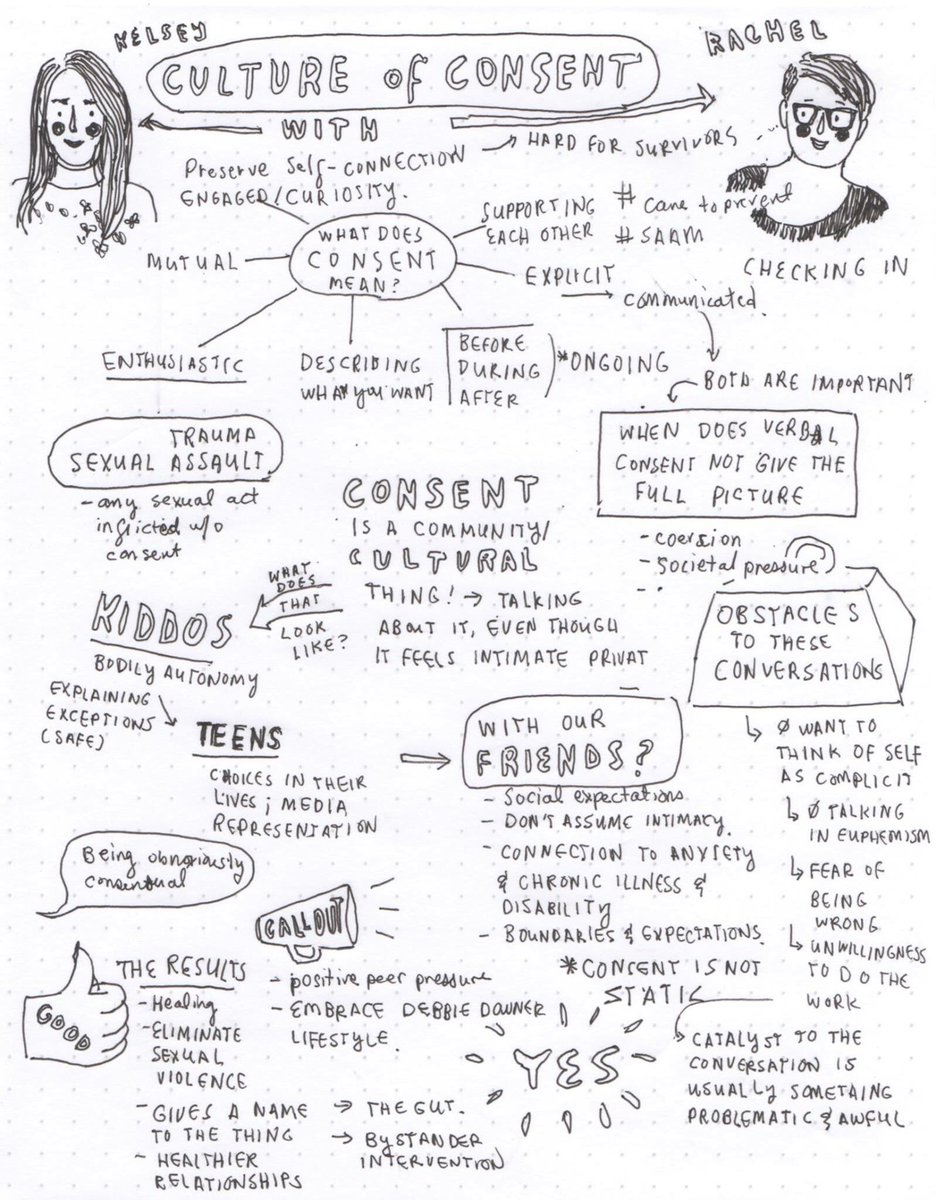 KELSEY
RACHEL
CULTURE of CONSENT
WITH
Preserve Self-CONNECTION
ENGAGED/CURIOSITY.
HARD FOR SURVIVORS
SUPPORTING
EACH OTHER
# Cane to prevent
# SAAM
CHECKING IN
WHAT DOES
CONSENT
MEAN?
MUTUAL
EXPLICIT
communicated
ENTHUSIASTIC
DESCRIBING
WHAT YOU WANT
BEFORE
DURING
AFTER
*ONGOING
BOTH ARE IMPORTANT
TRAUMA
SEXUAL ASSAULT
- any sexual act
inflicted w/o
consent
WHEN DOES VERBAL
CONSENT NOT GIVE THE
FULL PICTURE
- coersion
- Societal pressure
-
CONSENT
IS A COMMUNITY/
CULTURAL
THING! → TALKING
ABOUT IT, EVEN THOUGH
IT FEELS INTIMATE PRIVAT
WHAT
DOES
THAT
LOOK
LIKE?
KIDDOS
BODILY AUTONOMY
EXPLAINING
EXCEPTIONS
(SAFE)
TEENS
CHOICES IN THEIR
LIVES; MEDIA
REPRESENTATION
WITH OUR
FRIENDS?
- Social expectations
- DON'T ASSUME INTIMACY.
- CONNECTION TO ANXIETY
& CHRONIC ILLNESS &
DISABILITY
- BOUNDARIES & EXPECTATIONS.
*CONSENT IS NOT
STATIC
YES
OBSTACLES
TO THESE
CONVERSATIONS
Ø WANT TO
THINK OF SELF
AS COMPLICIT
Ø TALKING
IN EUPHEMISM
FEAR OF
BEING
WRONG
UNWILLINGNESS
TO DO THE
WORK
CATALYST TO THE
CONVERSATION IS
USUALLY SOMETHING
PROBLEMATIC & AWFUL
Being obnoxiously
consentual
CALLOUT
- positive peer pressure
- EMBRACE DEBBIE DOWNER
LIFESTYLE.
GOOD
THE RESULTS
- Healing
- ELIMINATE
SEXUAL
VIOLENCE
- GIVES A NAME
TO THE THING
- HEALTHIER
RELATIONSHIPS
→ THE GUT.
→ BYSTANDER
INTERVENTION